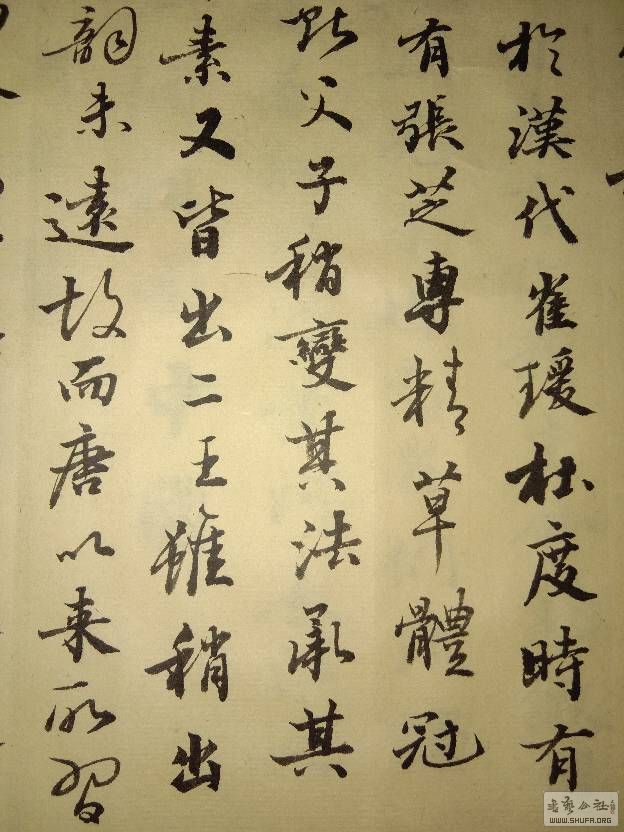 於漢代崔瑗杜度時有
有張芝專精草體冠
父子稍變其法承其
素又皆出二王雖稍出
韵未遠故而唐以来所習
書藝公社
WWW.SHUFA.ORG